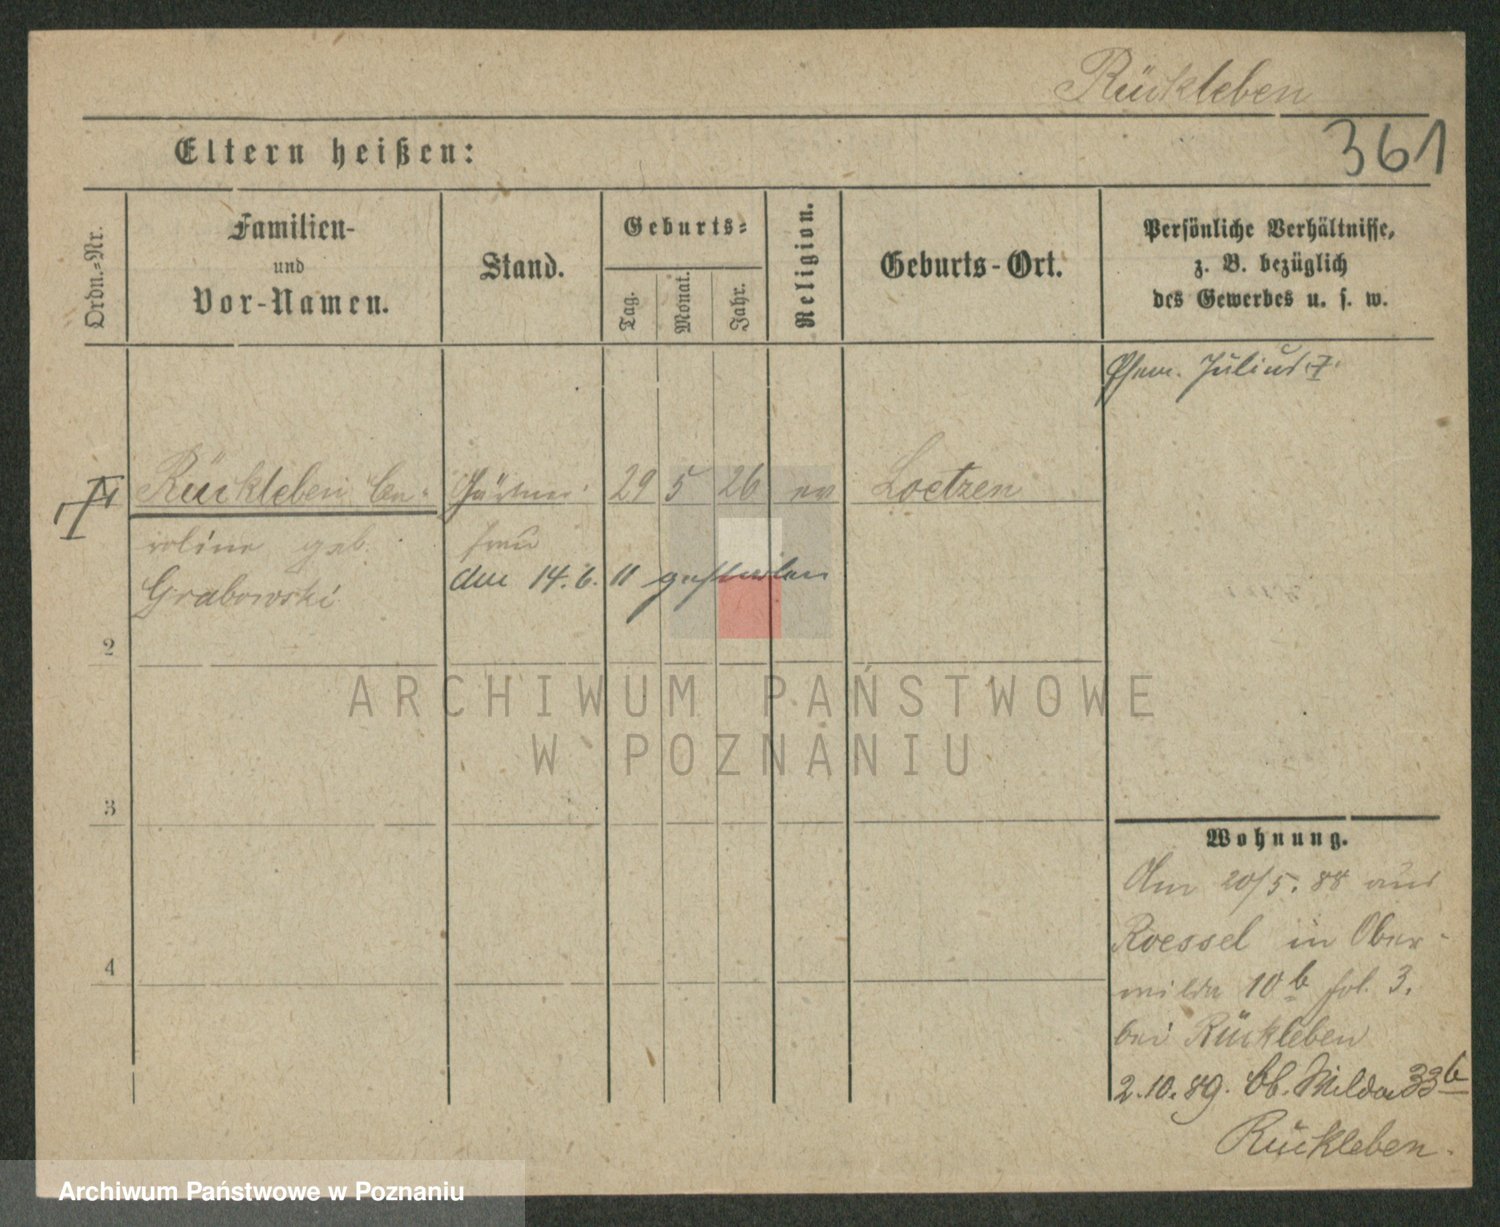 Rückleben
361
Eltern heißen:
Ordn.-Nr.
Familien-
und
Vor-Namen.
Stand.
Geburts-
Tag.
Monat.
Jahr.
Religion.
Geburts-Ort.
Persönliche Verhältnisse,
z. B. bezüglich
des Gewerbes u. s. w.
Julius I.
Rückleben Ca- Gärtner 29 5 26 ev Loetzen
roline geb. frau
den 14. 6. 11 gestorben
Grabowski
2
ARCHIWUM PAŃSTWOWE
W POZNANIU
3
Wohnung.
Am 20/5. 88 aus
Roessel in Ober-
wilda 10 b fol. 3.
bei Rückleben
2.10.89. Ob. Wilda 33 b
Rückleben.
4
Archiwum Państwowe w Poznaniu